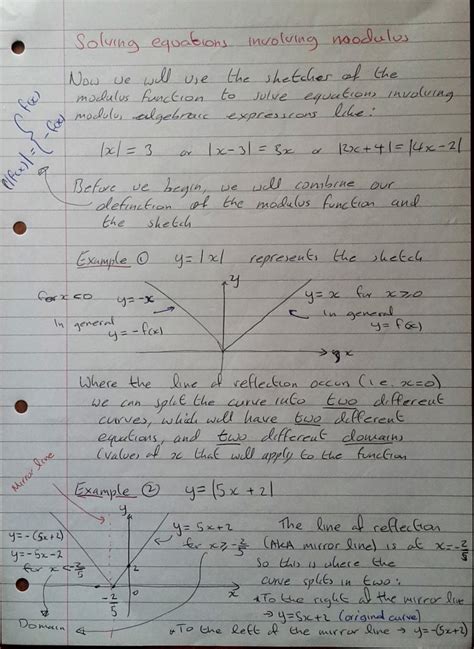 Solving equations involving modulus
Now we will use the sketches of the
modulus function to solve equations involving
modulus algebraic expressions like:
|f(x)| = { f(x)
-f(x)
|x| = 3 or |x-3| = 3x or |2x+4| = |4x-2|
Before we begin, we will combine our
definition of the modulus function and
the sketch
Example ① y = |x| represents the sketch
for x<0 y=-x
In general
y = -f(x)
y
x
y = x for x⩾0
In general
y = f(x)
Where the line of reflection occurs (i.e. x=0)
we can split the curve into two different
curves, which will have two different
equations, and two different domains
(values of x that will apply to the function
Mirror line
Example ② y = |5x+2|
y=-(5x+2)
y=-5x-2
for x<-2/5
Domain
y
2
-2/5
0
x
y = 5x+2
for x⩾-2/5
The line of reflection
(AKA mirror line) is at x=-2/5
So this is where the
curve splits in two:
*To the right of the mirror line
→ y=5x+2 (original curve)
*To the left of the mirror line → y=-(5x+2)